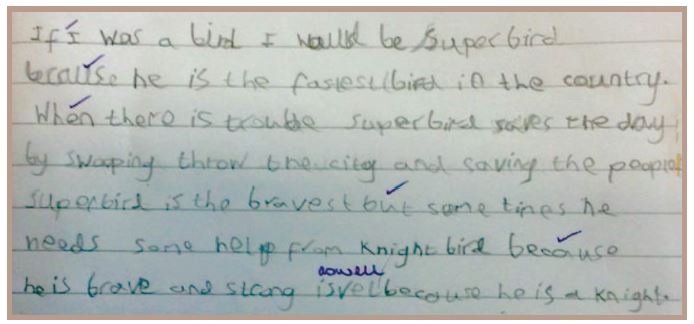 If I was a bird I would be Superbird
because he is the fastest bird in the country.
When there is trouble superbird saves the day
by swoping throw the city and saving the people
superbird is the bravest but some times he
needs some help from Knight bird because
aswell
he is brave and strong because he is a Knight.